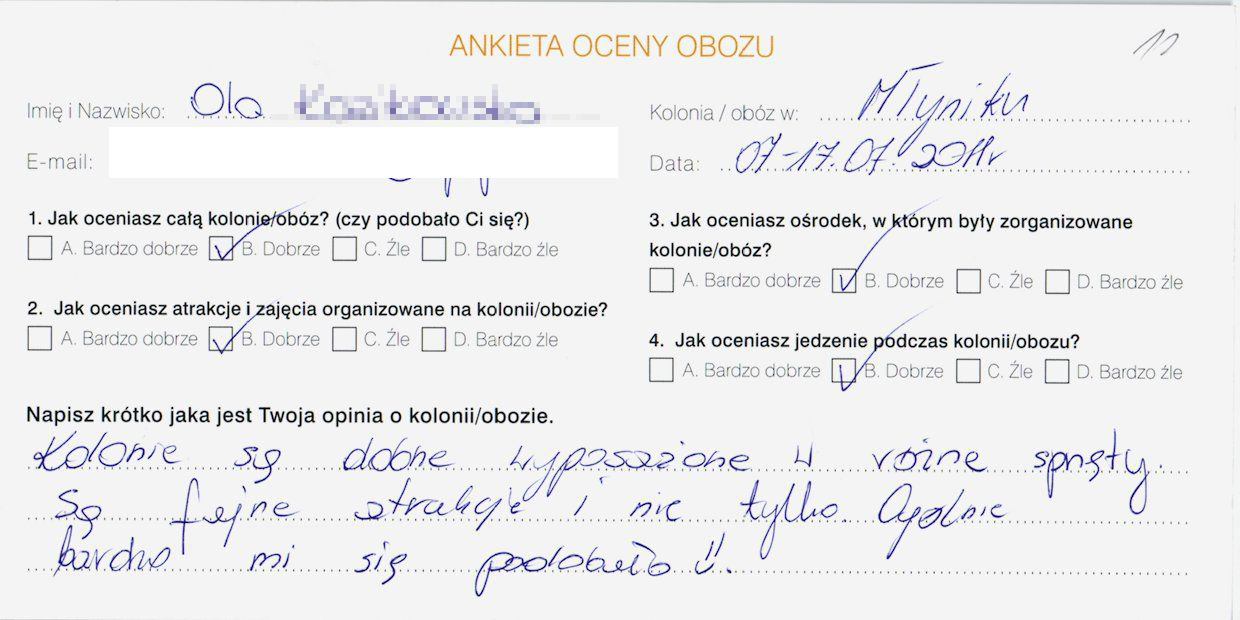 ANKIETA OCENY OBOZU
11
Imię i Nazwisko: Ola
E-mail:
Kolonia / obóz w: Młyniku
Data: 07-17.07.2011r
1. Jak oceniasz całą kolonie/obóz? (czy podobało Ci się?)
A. Bardzo dobrze B. Dobrze C. Źle D. Bardzo źle
2. Jak oceniasz atrakcje i zajęcia organizowane na kolonii/obozie?
A. Bardzo dobrze B. Dobrze C. Źle D. Bardzo źle
3. Jak oceniasz ośrodek, w którym były zorganizowane
kolonie/obóz?
A. Bardzo dobrze B. Dobrze C. Źle D. Bardzo źle
4. Jak oceniasz jedzenie podczas kolonii/obozu?
A. Bardzo dobrze B. Dobrze C. Źle D. Bardzo źle
Napisz krótko jaka jest Twoja opinia o kolonii/obozie.
Kolonie są dobrze wyposażone w różne sprzęty.
Są fajne atrakcje i nie tylko. Ogólnie
bardzo mi się podobało